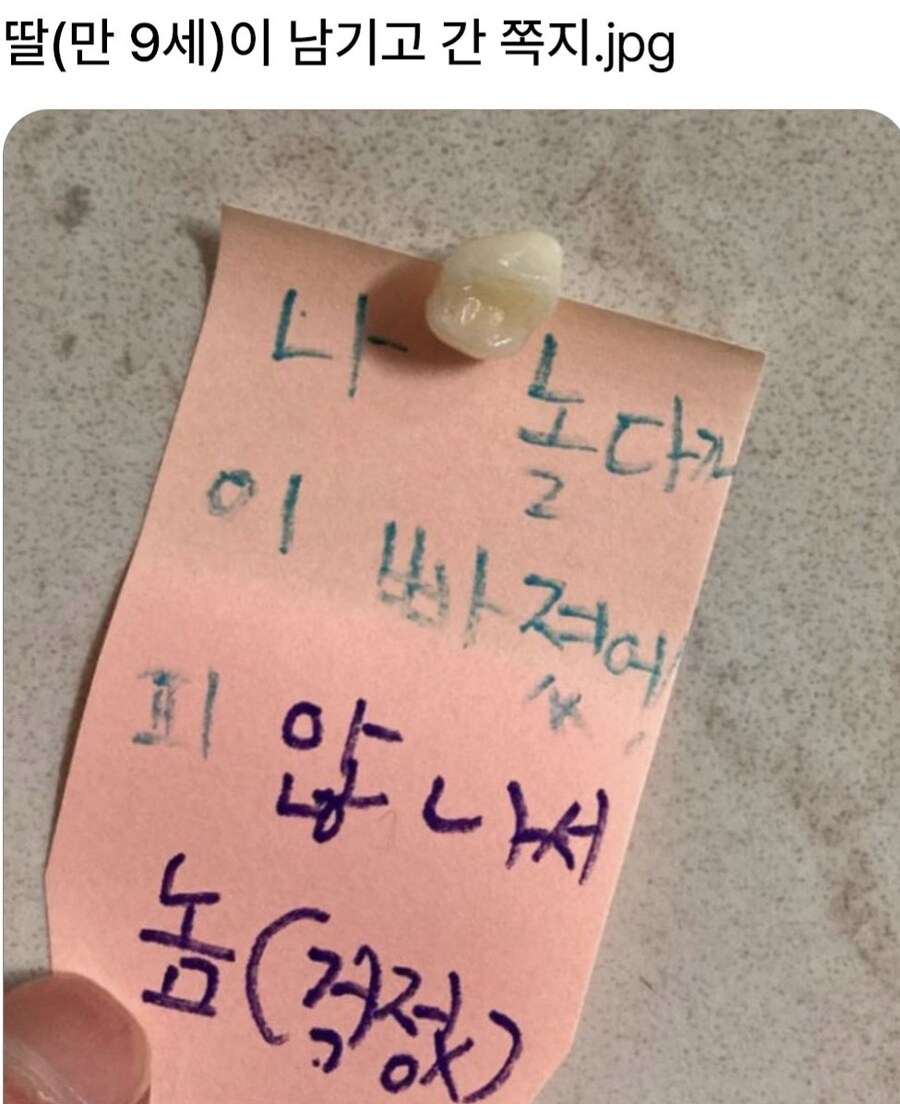 딸(만 9세)이 남기고 간 쪽지.jpg
나 놀다가
이 빠졌어
피 않 나서
놈(걱정X)